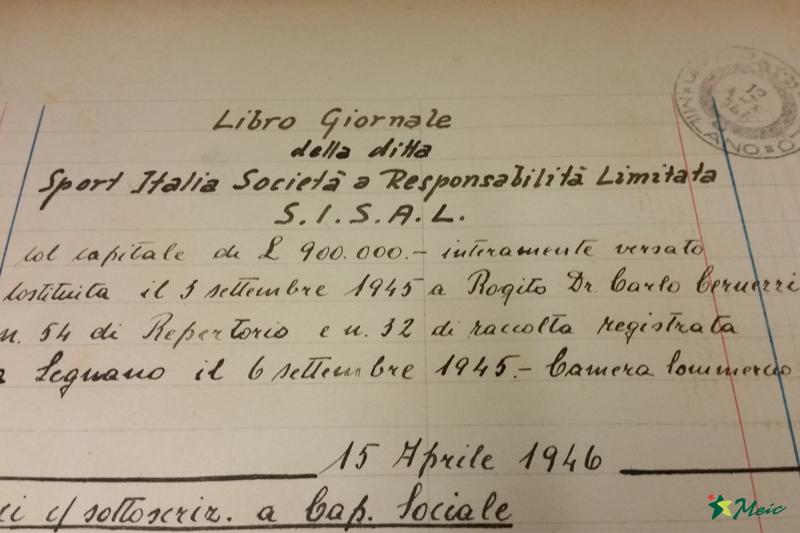 Libro Giornale
della ditta
Sport Italia Società a Responsabilità Limitata
S.I.S.A.L.
col capitale di £ 900.000.- interamente versato
costituita il 5 settembre 1945 a Rogito Dr. Carlo
n. 54 di Repertorio e n. 32 di raccolta registrata
a Legnano il 6 settembre 1945.- Camera Commercio
15 Aprile 1946
c/ sottoscriz. a Cap. Sociale
12
MILANO
Meic